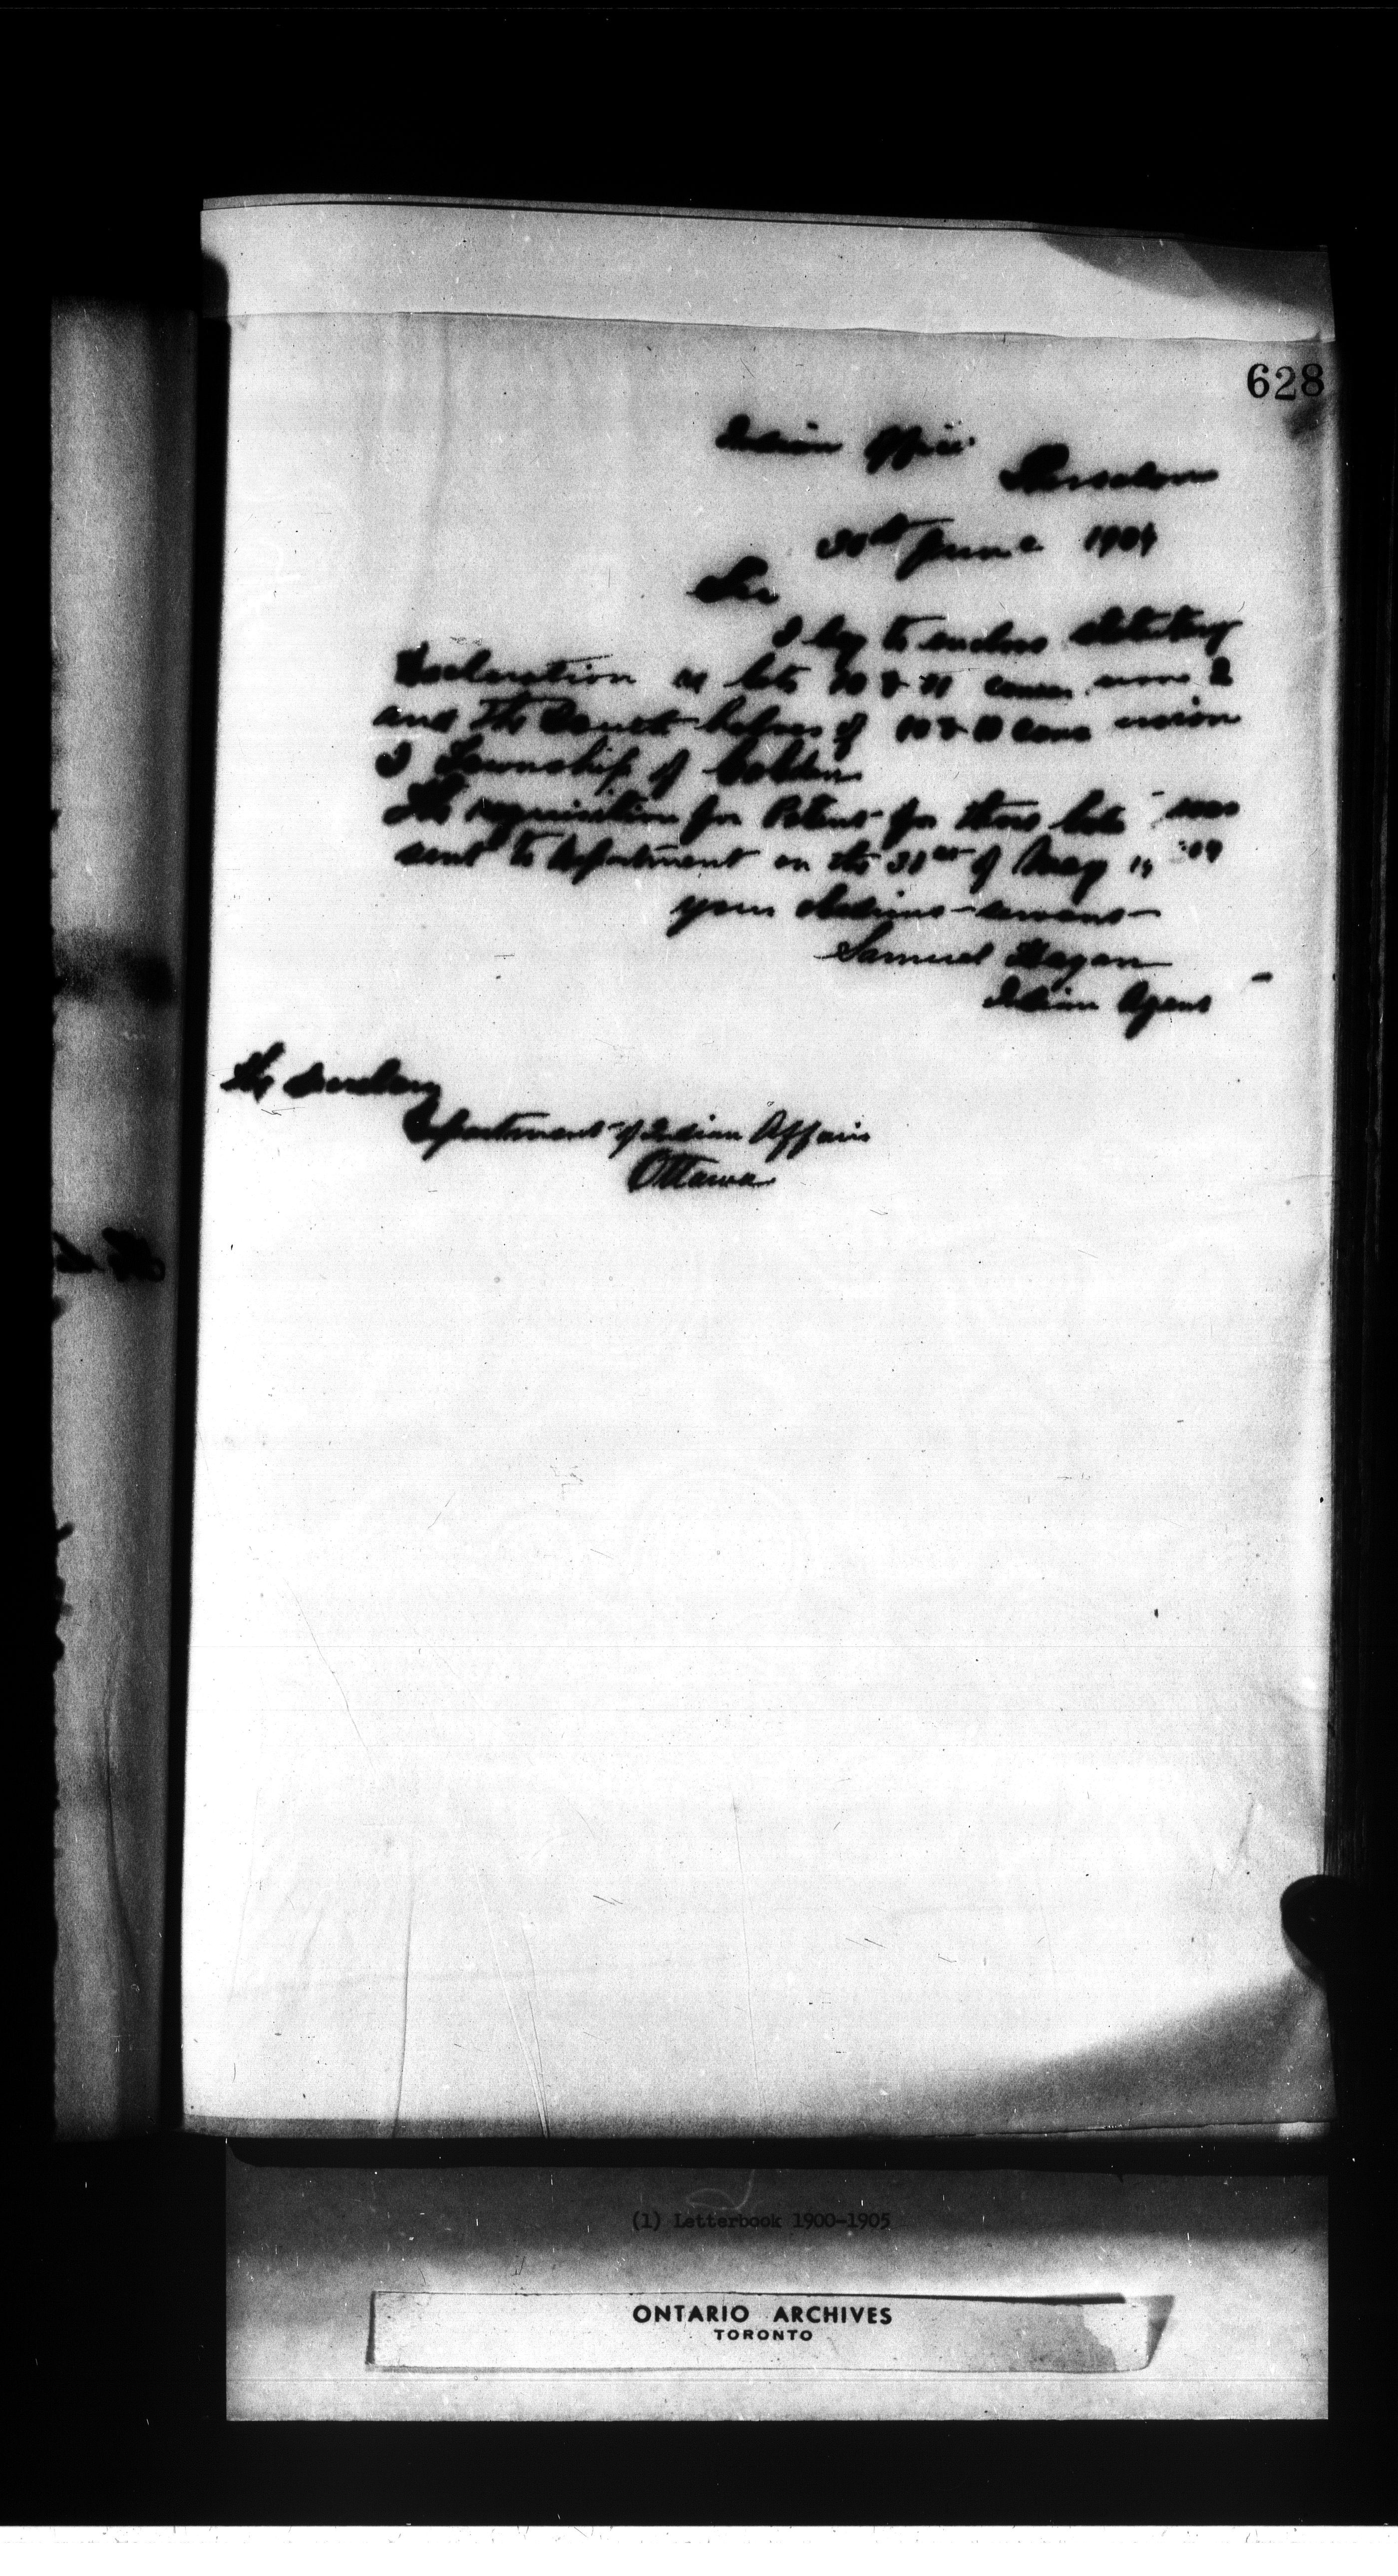 628
Indian Office
Thessalon
30th June 1904
Sir
I beg to enclose Statutory
Declaration re lots 10 & 11 concession 2
and the South halves of 10 & 11 concession
3 Township of Cobden
The requisition for Patent for these lots was
sent to Department on the 31st of May
your obedient servant
Samuel Hagan
Indian Agent
The Secretary
Department of Indian Affairs
Ottawa
(1) Letterbook 1900-1905
ONTARIO ARCHIVES
TORONTO